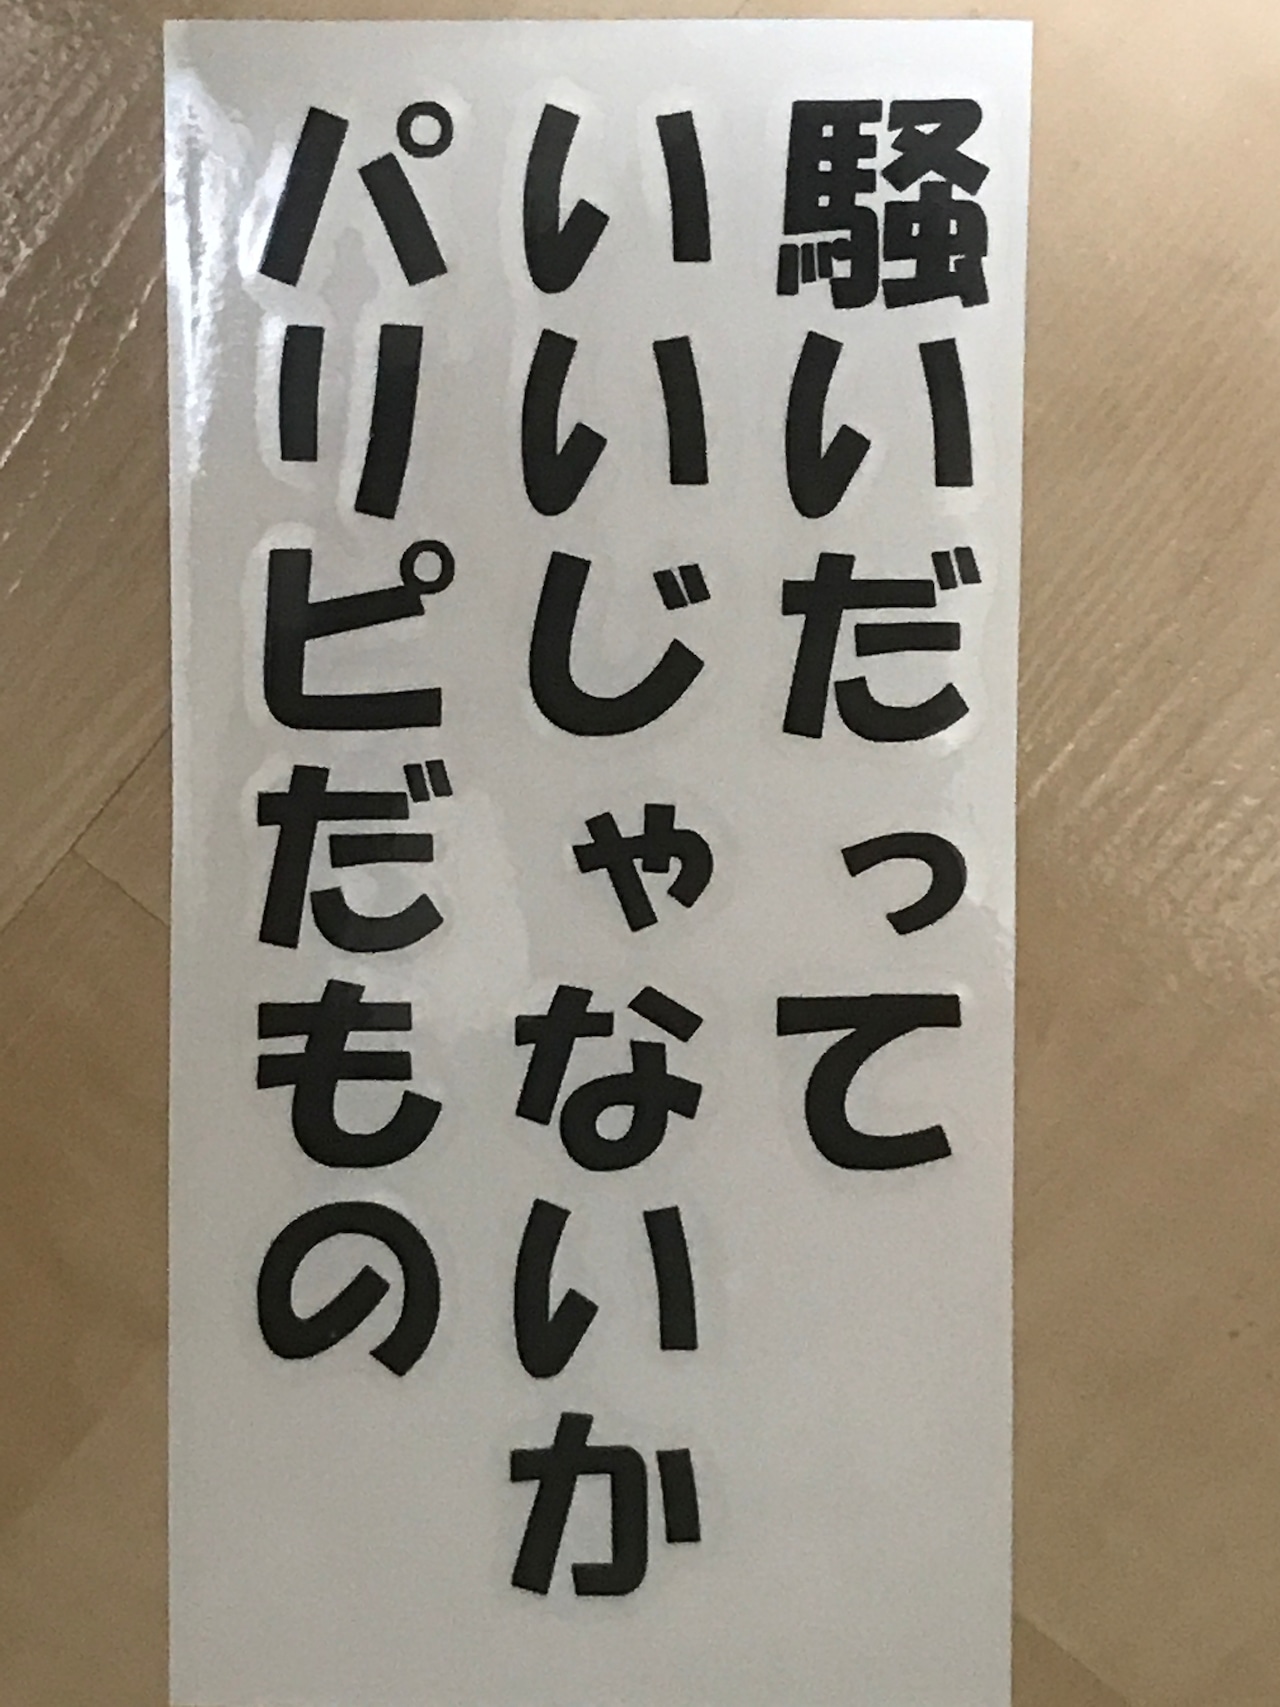 騒いだって
いいいじゃないか
パリピだもの